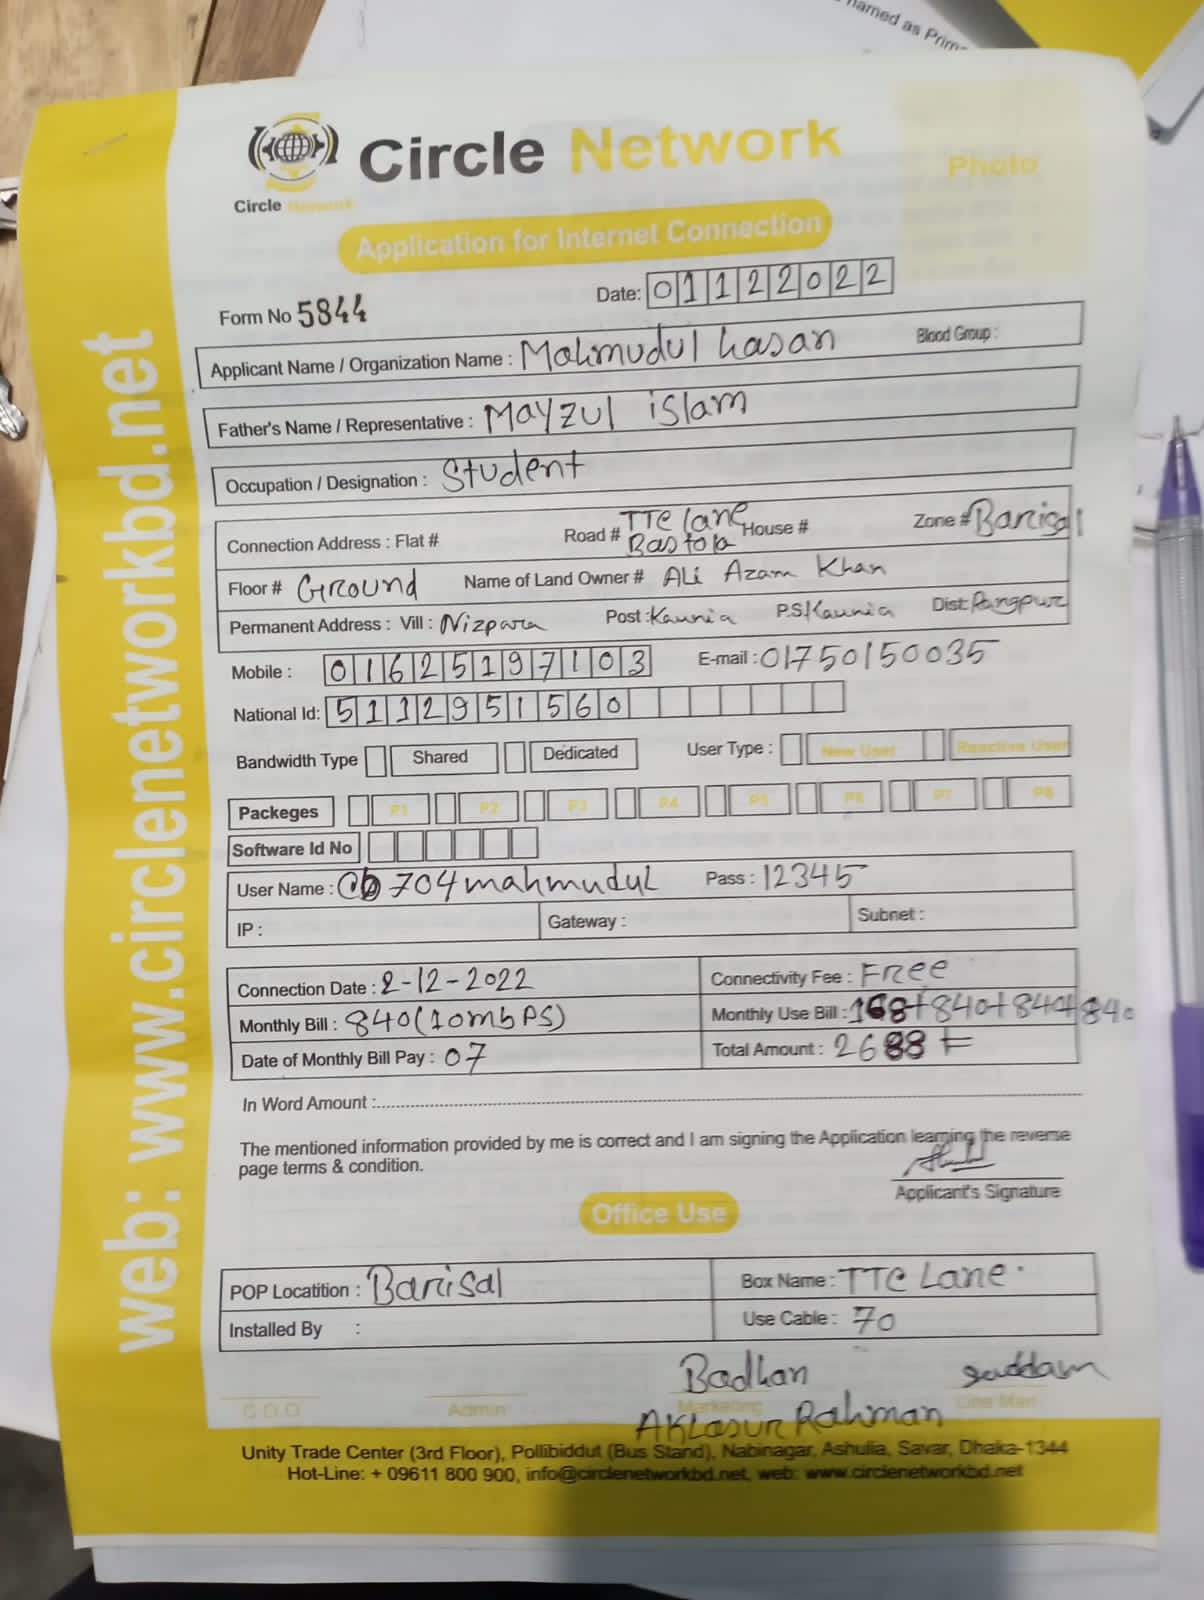 named as Prim
Circle Network
Circle Network
Photo
Application for Internet Connection
Form No 5844
Date: 01122022
Applicant Name / Organization Name : Mahmudul hasan Blood Group :
Father's Name / Representative : Mayzul islam
Occupation / Designation : Student
Connection Address : Flat # Road # TTC lane Bastola House # Zone # Barisal
Floor # Ground Name of Land Owner # ALi Azam Khan
Permanent Address : Vill : Nizpara Post : Kaunia P.S Kaunia Dist: Rangpur
Mobile : 01625197103 E-mail : 01750150035
National Id: 5112951560
Bandwidth Type Shared Dedicated User Type : New User Reactive User
Packeges P1 P2 P3 R4 P5 P6 P7 P8
Software Id No
User Name : Cb704mahmudul Pass : 12345
IP : Gateway : Subnet :
Connection Date : 2-12-2022 Connectivity Fee : Free
Monthly Bill : 840(10mbPS) Monthly Use Bill : 168+840+840+840
Date of Monthly Bill Pay : 07 Total Amount : 2688 =
In Word Amount :
The mentioned information provided by me is correct and I am signing the Application learning the reverse
page terms & condition.
Applicant's Signature
Office Use
POP Locatition : Barisal Box Name : TTC Lane.
Installed By : Use Cable : 70
Badhan saddam
C.O.O Admin Marketing Line Man
AKLasur Rahman
Unity Trade Center (3rd Floor), Pollibiddut (Bus Stand), Nabinagar, Ashulia, Savar, Dhaka-1344
Hot-Line: + 09611 800 900, info@circlenetworkbd.net, web: www.circlenetworkbd.net
web: www.circlenetworkbd.net